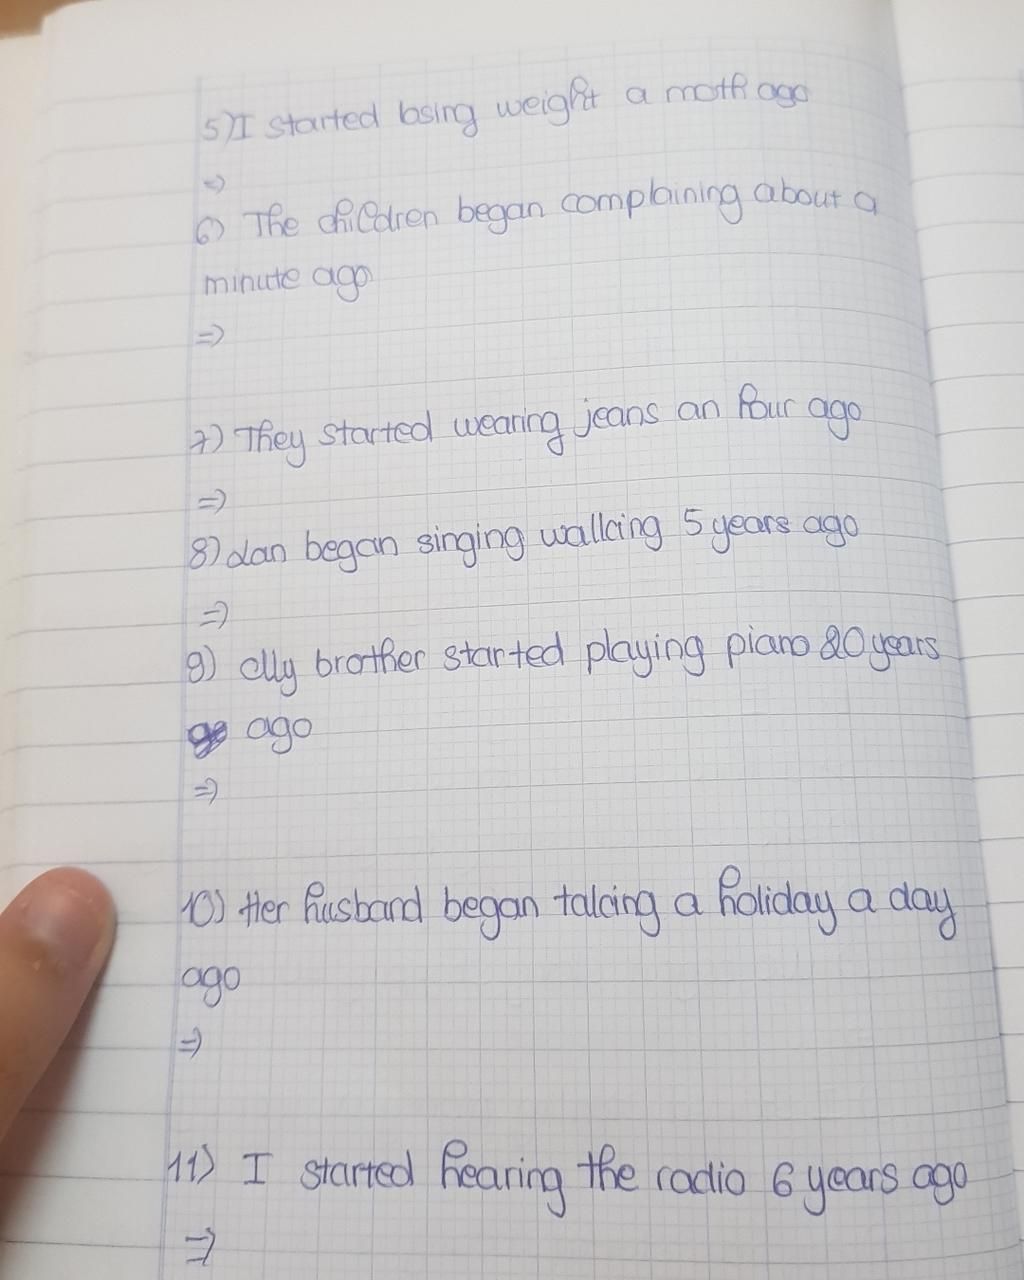 5) I started losing weight a moth ago
=>
6) The children began complaining about a
minute ago
=>
7) They started wearing jeans an hour ago
=>
8) dan began singing walking 5 years ago
=>
9) My brother started playing piano 20 years
ago
=>
10) Her husband began taking a holiday a day
ago
=>
11) I started hearing the radio 6 years ago
=>